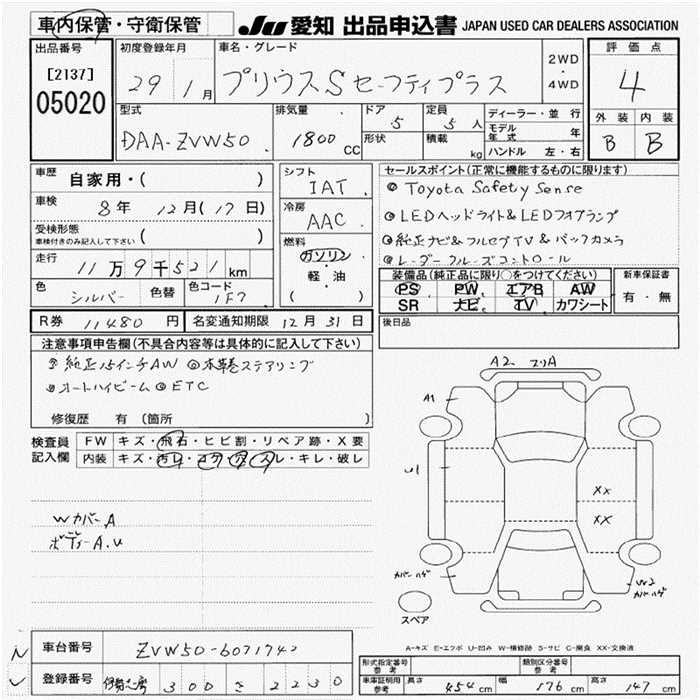 車内保管・守衛保管
JU 愛知 出品申込書 JAPAN USED CAR DEALERS ASSOCIATION
出品番号
[2137]
05020
初度登録年月
29年 1月
車名・グレード
プリウスSセーフティプラス
2WD
・
4WD
評価点
4
外装 内装
B B
型式
DAA-ZVW50
排気量
1800cc
ドア 5
形状
定員 5人
積載 kg
ディーラー・並行
モデル年式 年
ハンドル 左・右
車歴 自家用・( )
車検 8年 12月(17日)
受検形態
車検付きのみ記入して下さい ( )
走行 11万9千521km
色 シルバー 色替 色コード 1F7
シフト IAT
冷房 AAC
燃料
ガソリン
軽・油
( )
セールスポイント(正常に機能するものに限ります)
◎ Toyota Safety Sense
◎ LEDヘッドライト&LEDフォグランプ
◎ 純正ナビ&フルセグTV&バックカメラ
◎ レーダークルーズコントロール
装備品(純正品に限り○をつけてください)
PS PW エアB AW
SR ナビ TV カワシート
新車保証書
有・無
R券 11480円 名変通知期限 12月31日
後日品
注意事項申告欄(不具合内容等は具体的に記入して下さい)
◎純正15インチAW ◎本革巻ステアリング
◎オートハイビーム ◎ETC
修復歴 有(箇所 )
検査員記入欄
FW キズ・飛石・ヒビ割・リペア跡・X要
内装 キズ・汚レ・コゲ・穴・スレ・キレ・破レ
WカバーA
ボディーA.U
A2 フリA
A1
U1
XX
XX
カバーハゲ
W2
カバーハゲ
スペア
A-キズ E-エクボ U-凹み W-補修跡 S-サビ C-腐食 XX-交換済
車台番号 ZVW50-6071742
登録番号 300 さ 2230
形式指定番号 参考
類別区分番号 参考
車庫証明用参考 長さ 454cm 幅 176cm 高さ 147cm